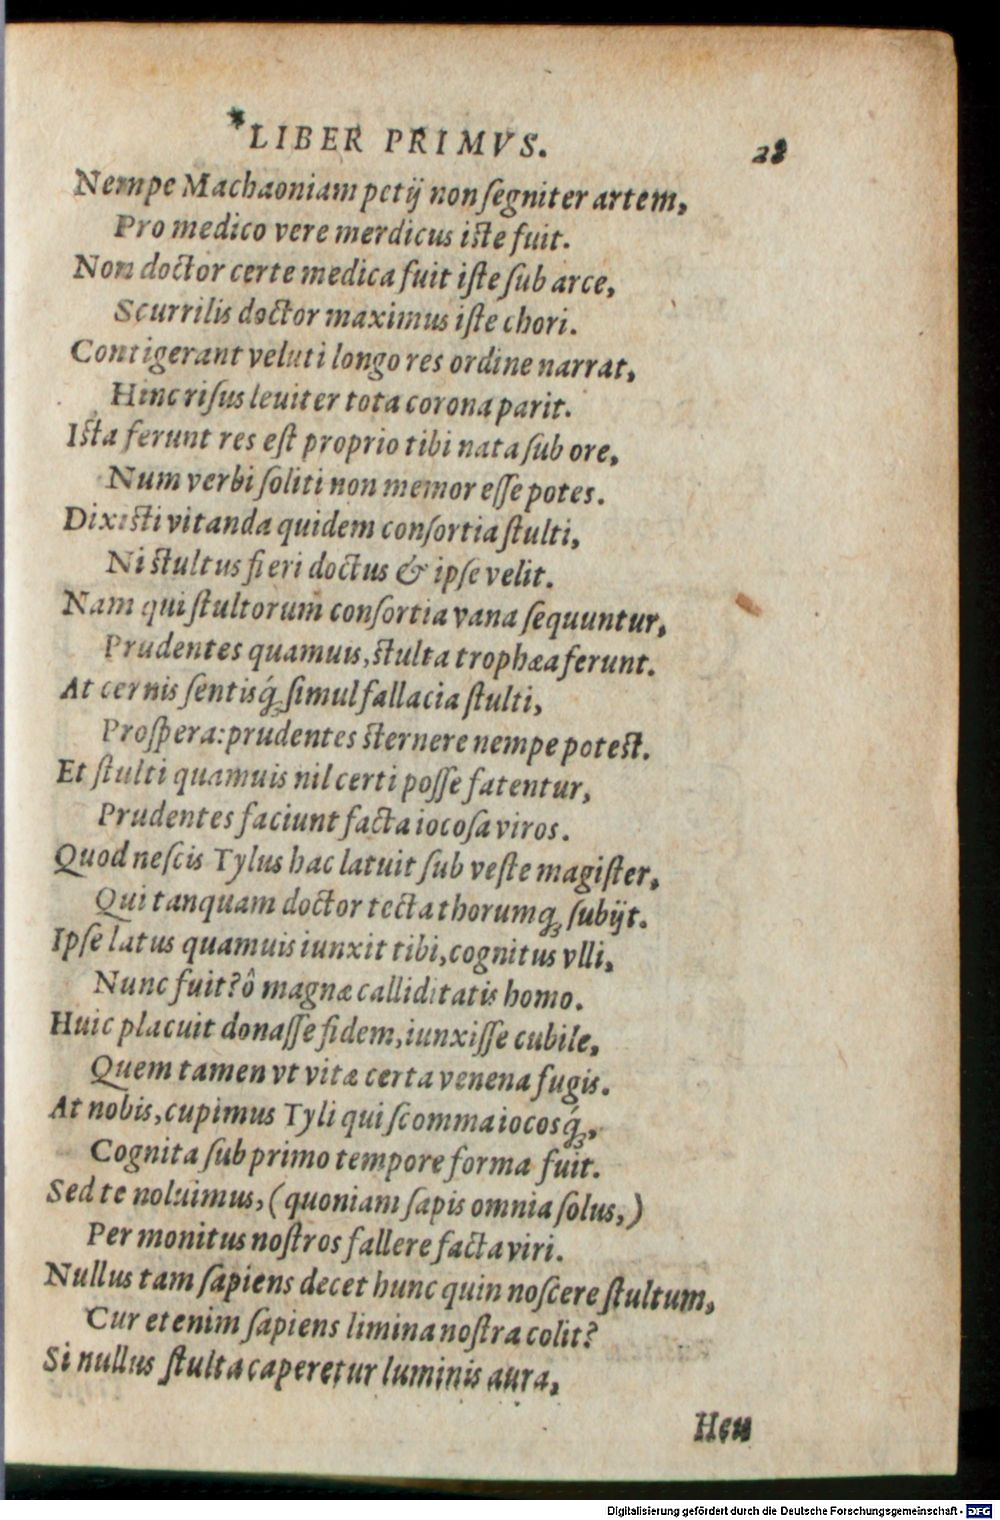 *LIBER PRIMVS. 28
Nempe Machaoniam petij non ſegniter artem,
Pro medico vere merdicus iſte fuit.
Non doctor certe medica fuit iſte ſub arce,
Scurrilis doctor maximus iſte chori.
Contigerant veluti longo res ordine narrat,
Hinc riſus leuiter tota corona parit.
Iſta ferunt res eſt proprio tibi nata ſub ore,
Num verbi ſoliti non memor eſſe potes.
Dixiſti vitanda quidem conſortia ſtulti,
Ni ſtultus fieri doctus & ipſe velit.
Nam qui ſtultorum conſortia vana ſequuntur,
Prudentes quamuis, ſtulta trophæa ferunt.
At cernis ſentisq́; ſimul fallacia ſtulti,
Proſpera: prudentes ſternere nempe poteſt.
Et ſtulti quamuis nil certi poſſe fatentur,
Prudentes faciunt facta iocoſa viros.
Quod neſcis Tylus hac latuit ſub veſte magiſter,
Qui tanquam doctor tecta thorumq; ſubijt.
Ipſe latus quamuis iunxit tibi, cognitus vlli,
Nunc fuit? ô magnæ calliditatis homo.
Huic placuit donaſſe fidem, iunxiſſe cubile,
Quem tamen vt vitæ certa venena fugis.
At nobis, cupimus Tyli qui ſcomma iocosq́;,
Cognita ſub primo tempore forma fuit.
Sed te noluimus, (quoniam ſapis omnia ſolus,)
Per monitus noſtros fallere facta viri.
Nullus tam ſapiens decet hunc quin noſcere ſtultum,
Cur etenim ſapiens limina noſtra colit?
Si nullus ſtulta caperetur luminis aura,
Heu
Digitalisierung gefördert durch die Deutsche Forschungsgemeinschaft - DFG